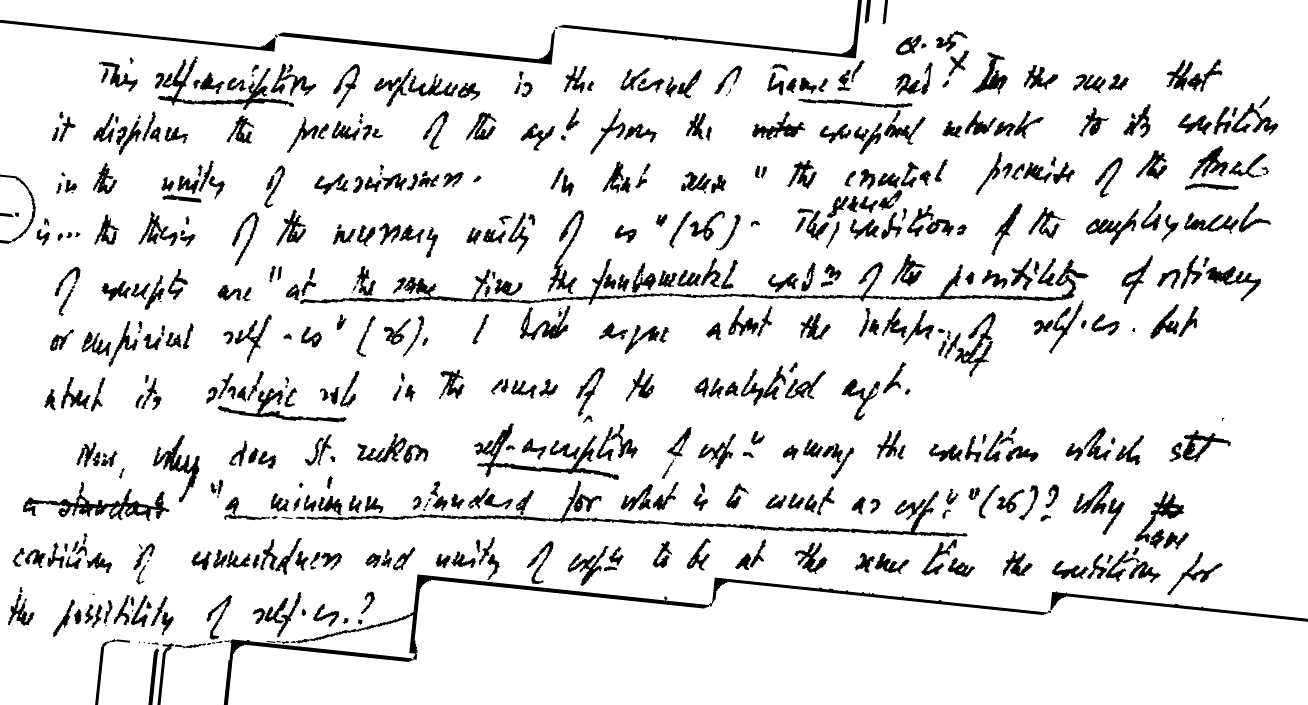 cf. 25
This self-ascription of experiences is the kernel of transc.al ded. In the sense that
it displaces the premise of the arg.t from the conceptual network to its condition
in the unity of consciousness. In that sense "the essential premise of the Anal.
is... the thesis of the necessary unity of cs" (26) - The general conditions of the employment
of concepts are "at the same time the fundamental cond.ns of the possibility of ordinary
or empirical self-cs" (26). I don't argue about the interpr. of self-cs. itself but
about its strategic role in the course of the analytical argt.
Now, why does St. reckon self-ascription of exp.ce among the conditions which set
a standard "a minimum standard for what is to count as exp.ce" (26)? Why have
condition of connectedness and unity of exp.ce to be at the same time the conditions for
the possibility of self-cs.?